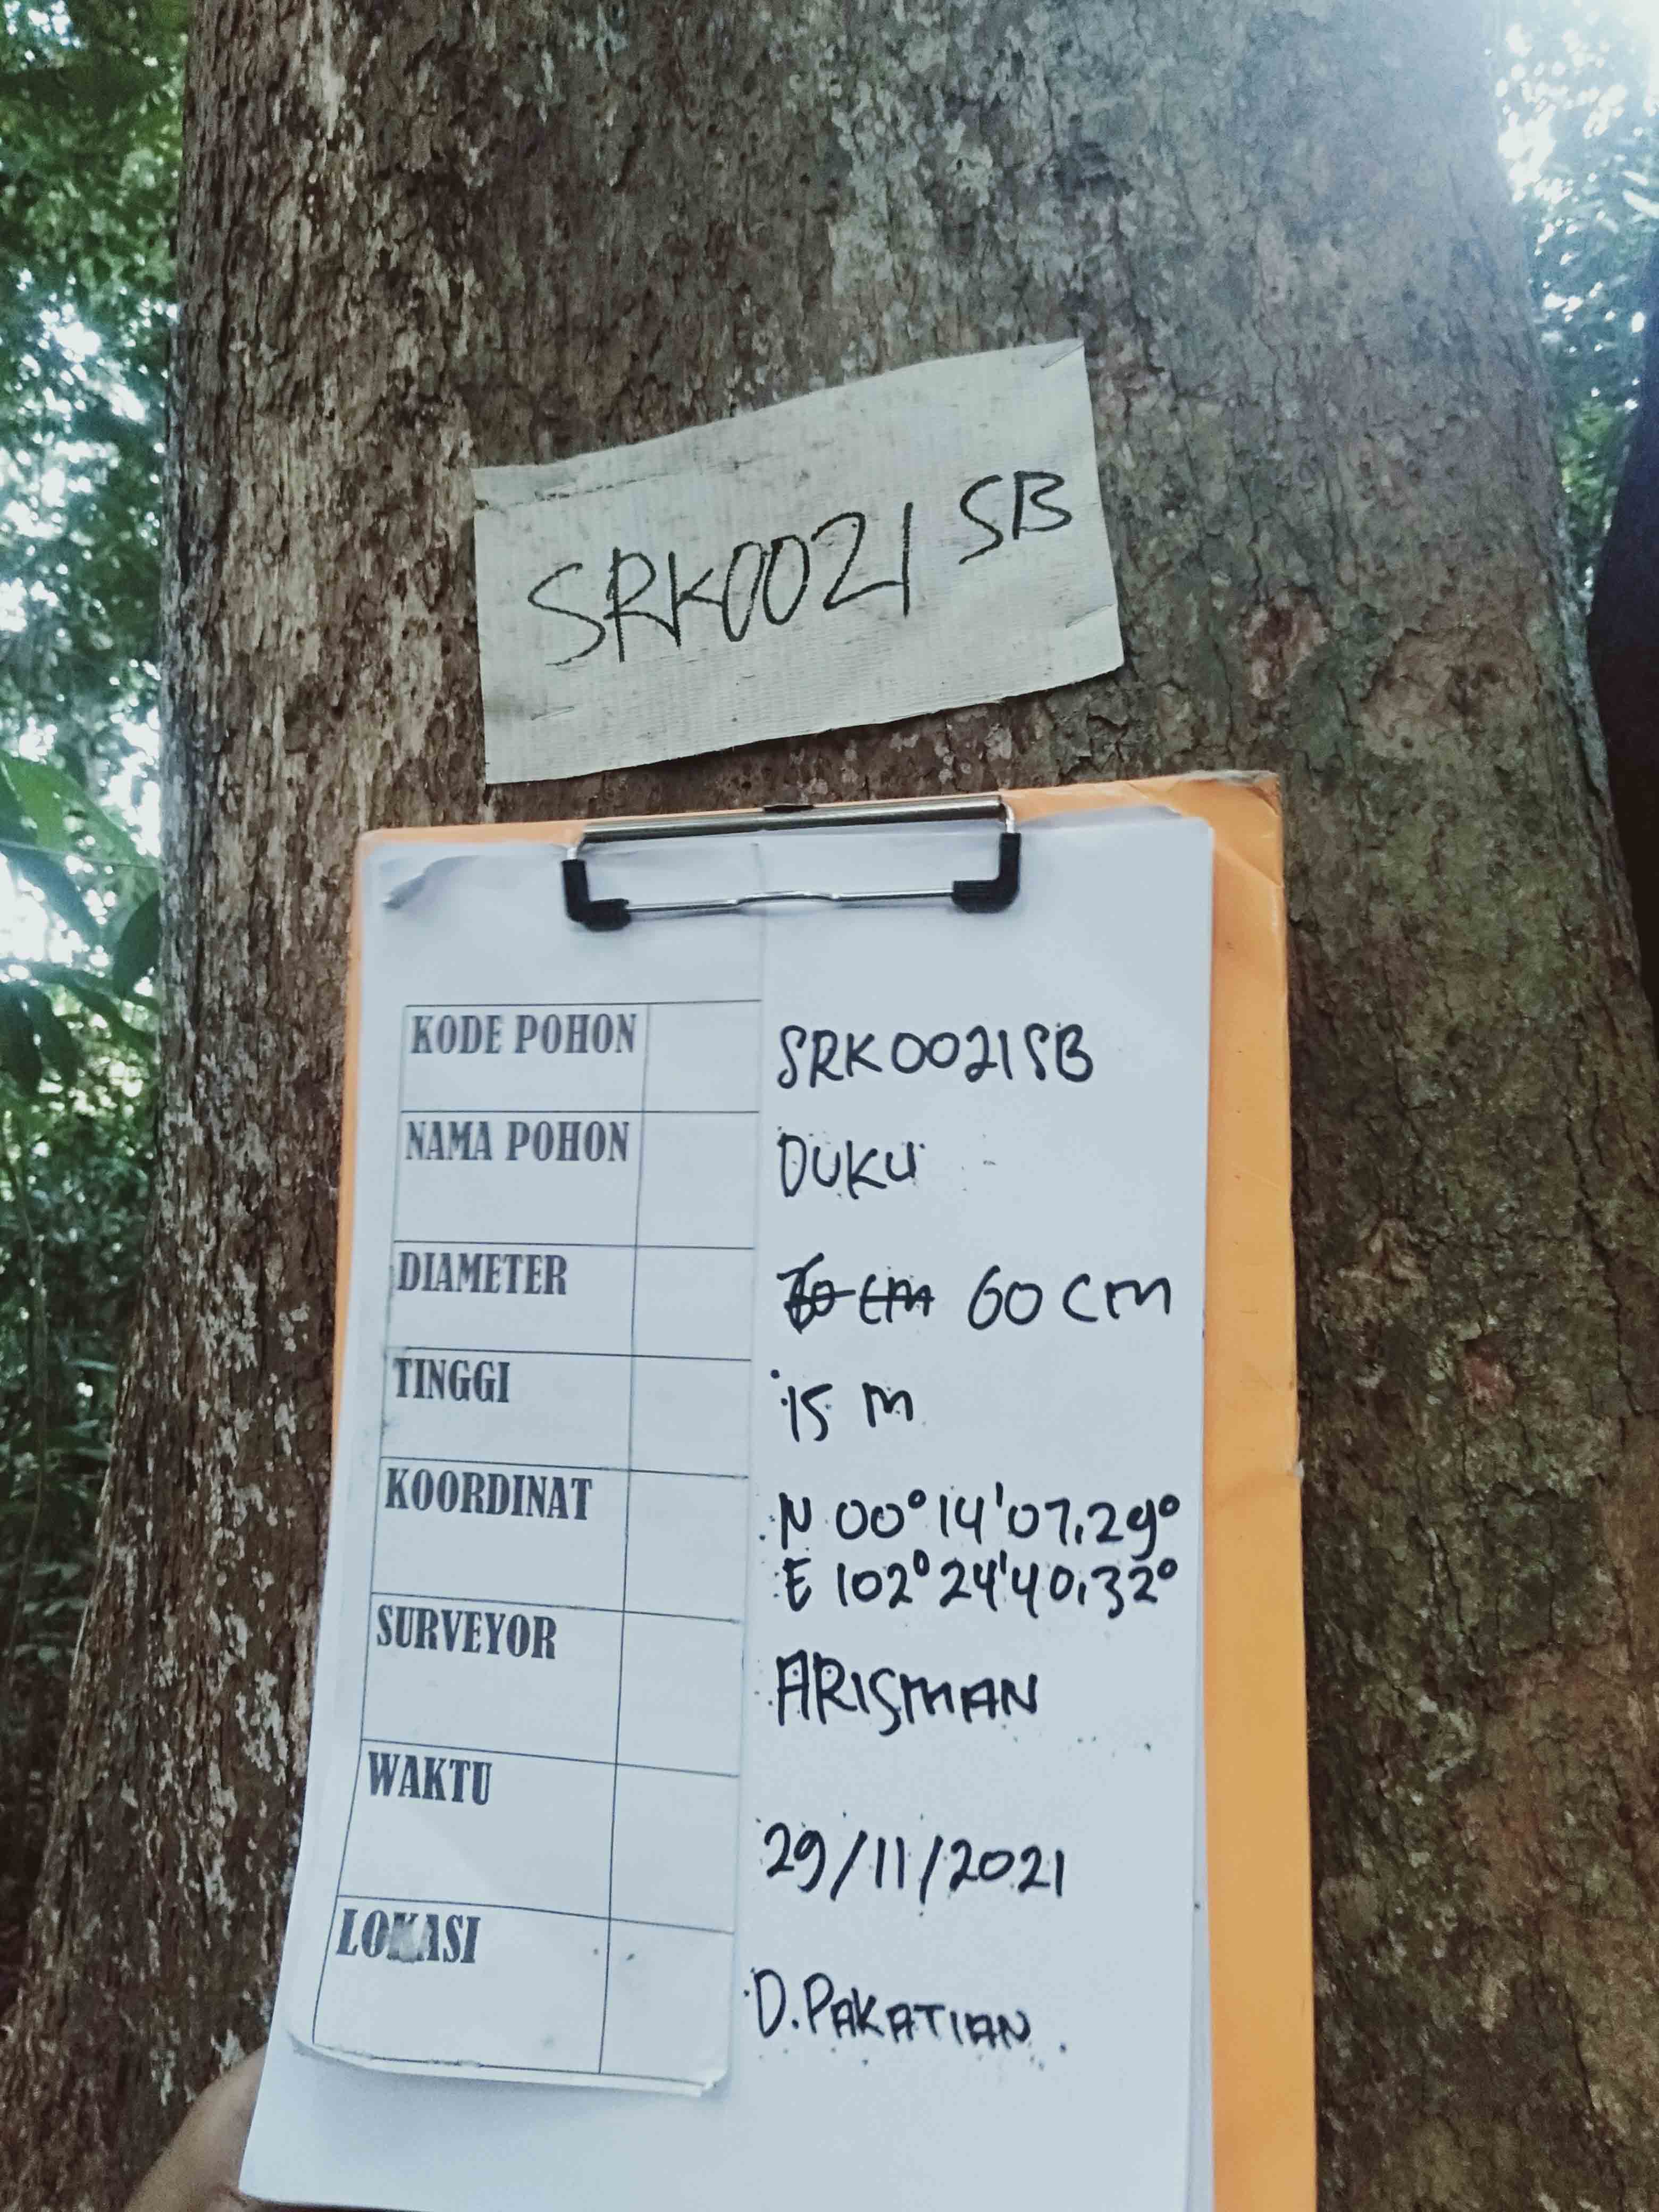 SRK0021 SB
KODE POHON SRK0021SB
NAMA POHON DUKU
DIAMETER 60 cm
TINGGI 15 m
KOORDINAT N 00°14'07,29°
E 102°24'40,32°
SURVEYOR ARISMAN
WAKTU 29/11/2021
LOKASI D.PAKATIAN